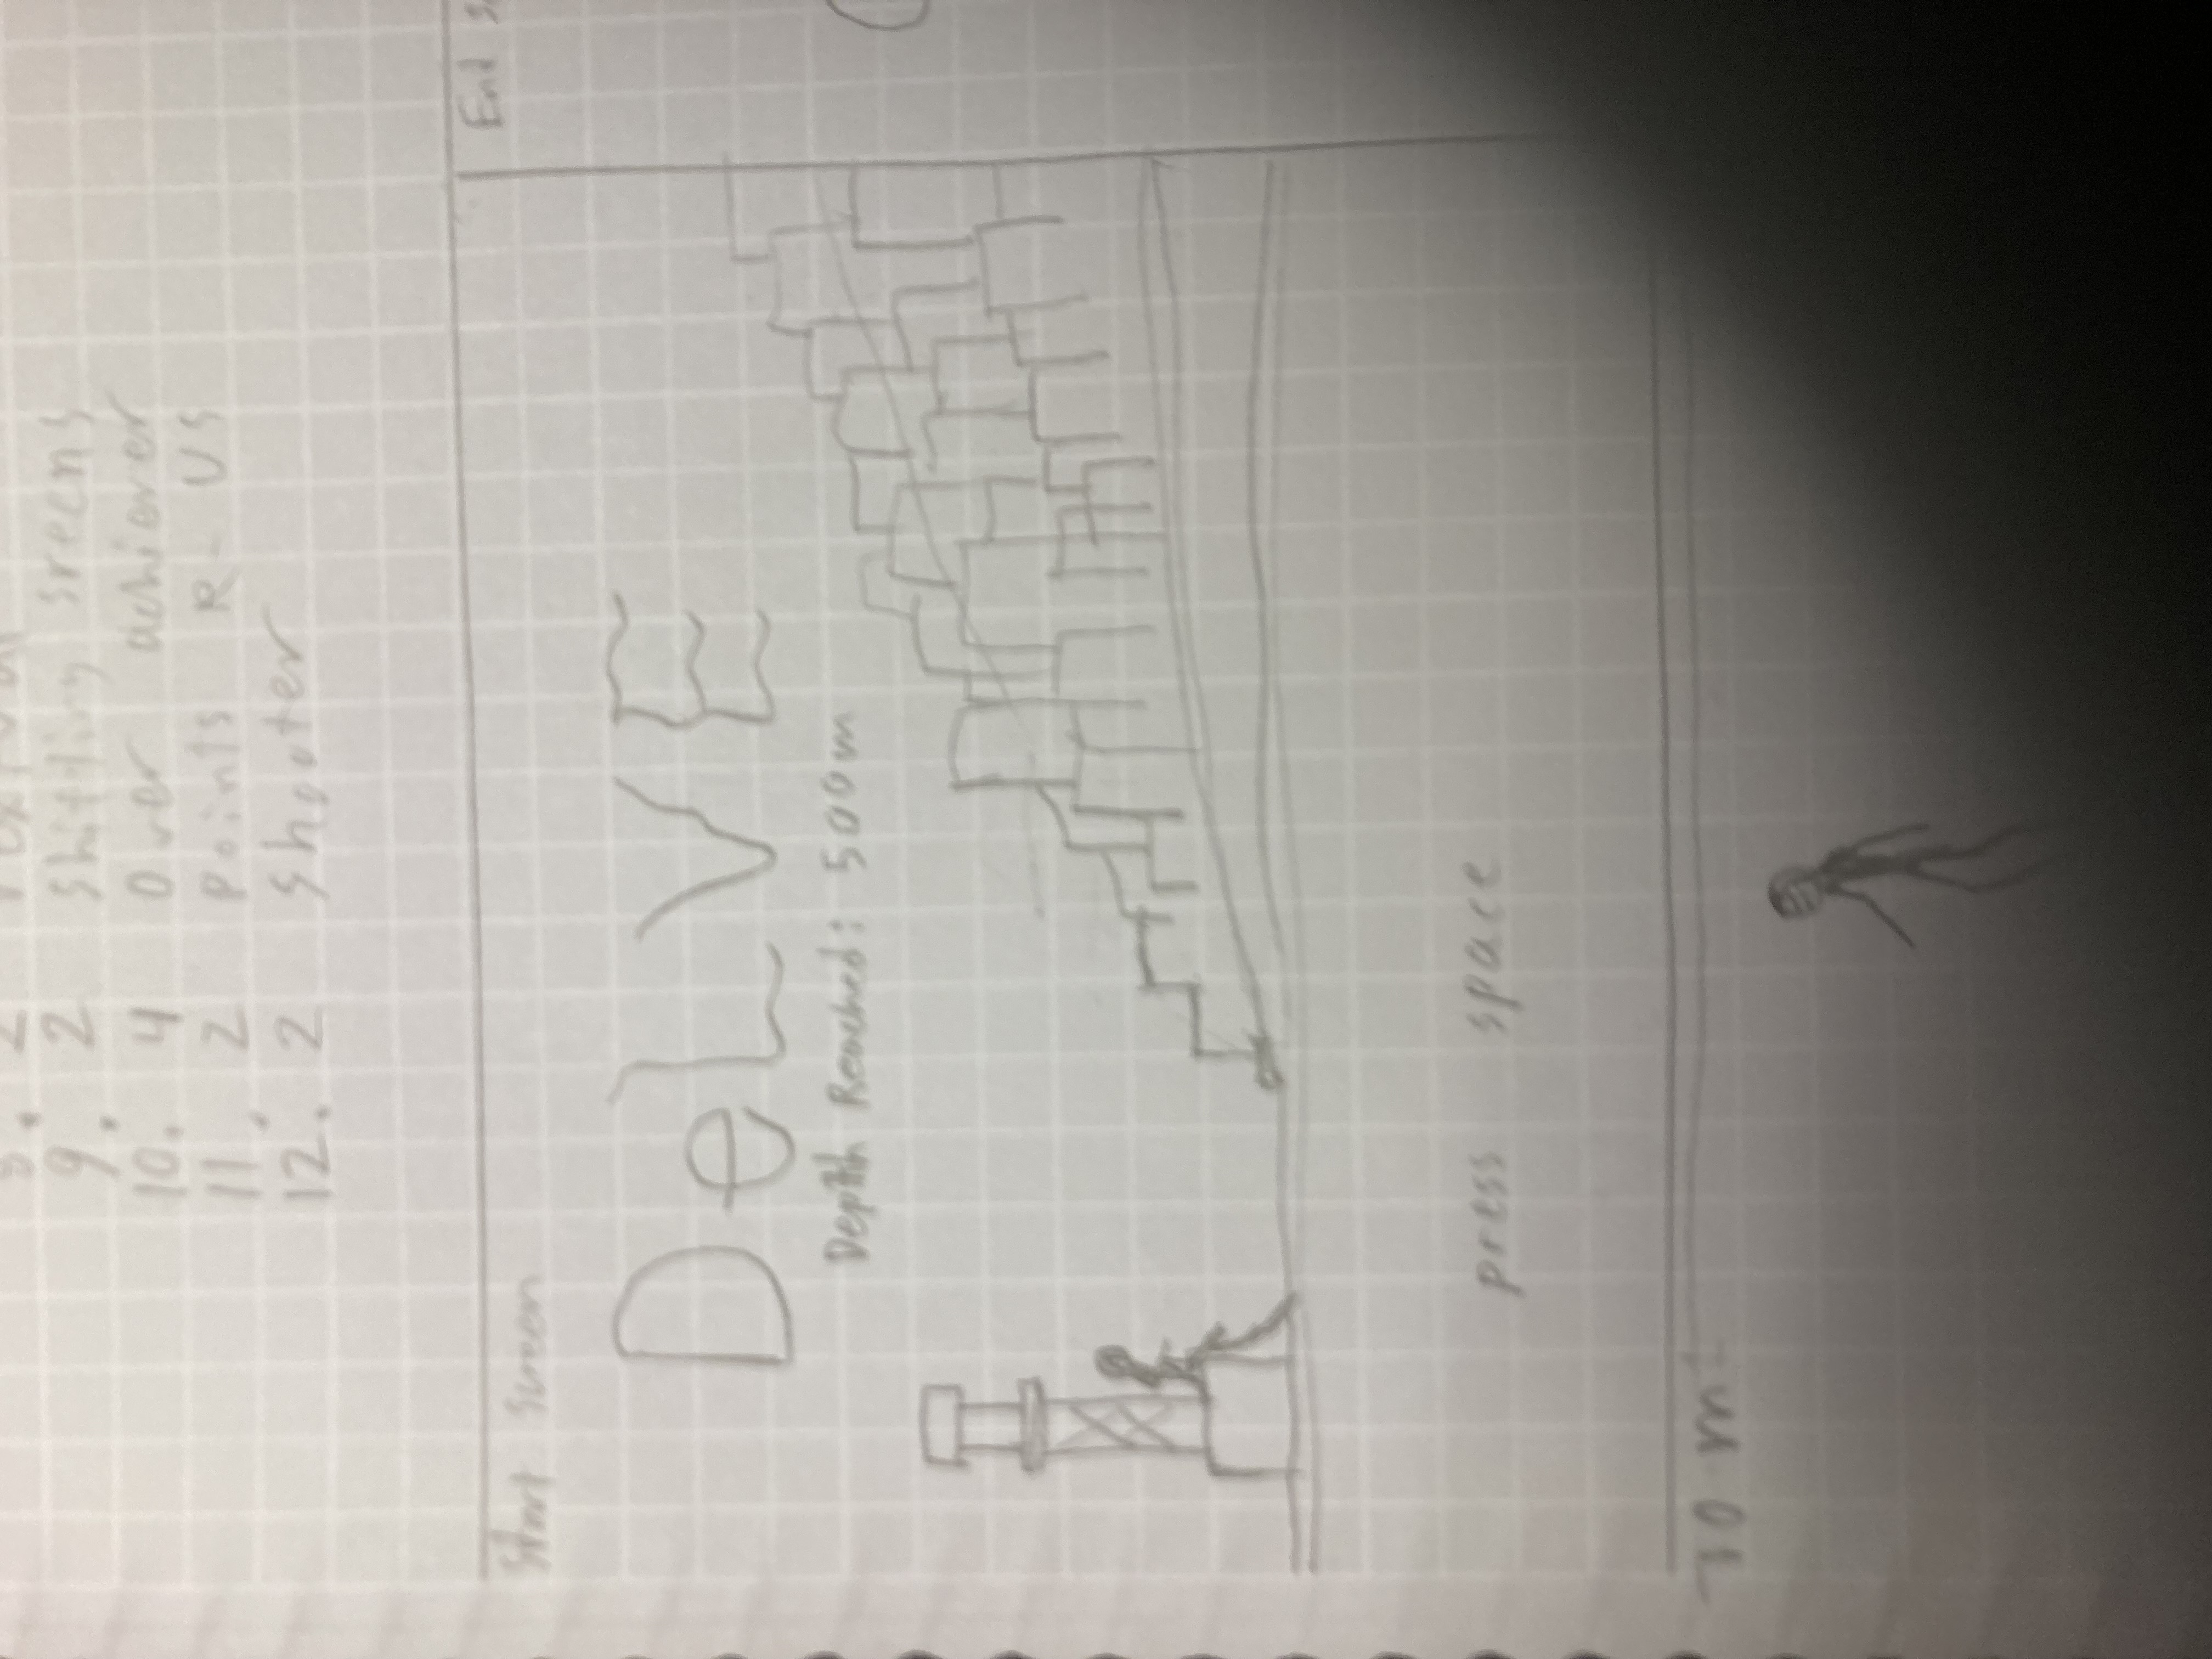 9. 2 Shifting sreens
10. 4 Over achiever
11. 2 Points R-US
12. 2 Shooter
Start Screen
End
DeLVE
Depth Reached: 500m
press space
10 m